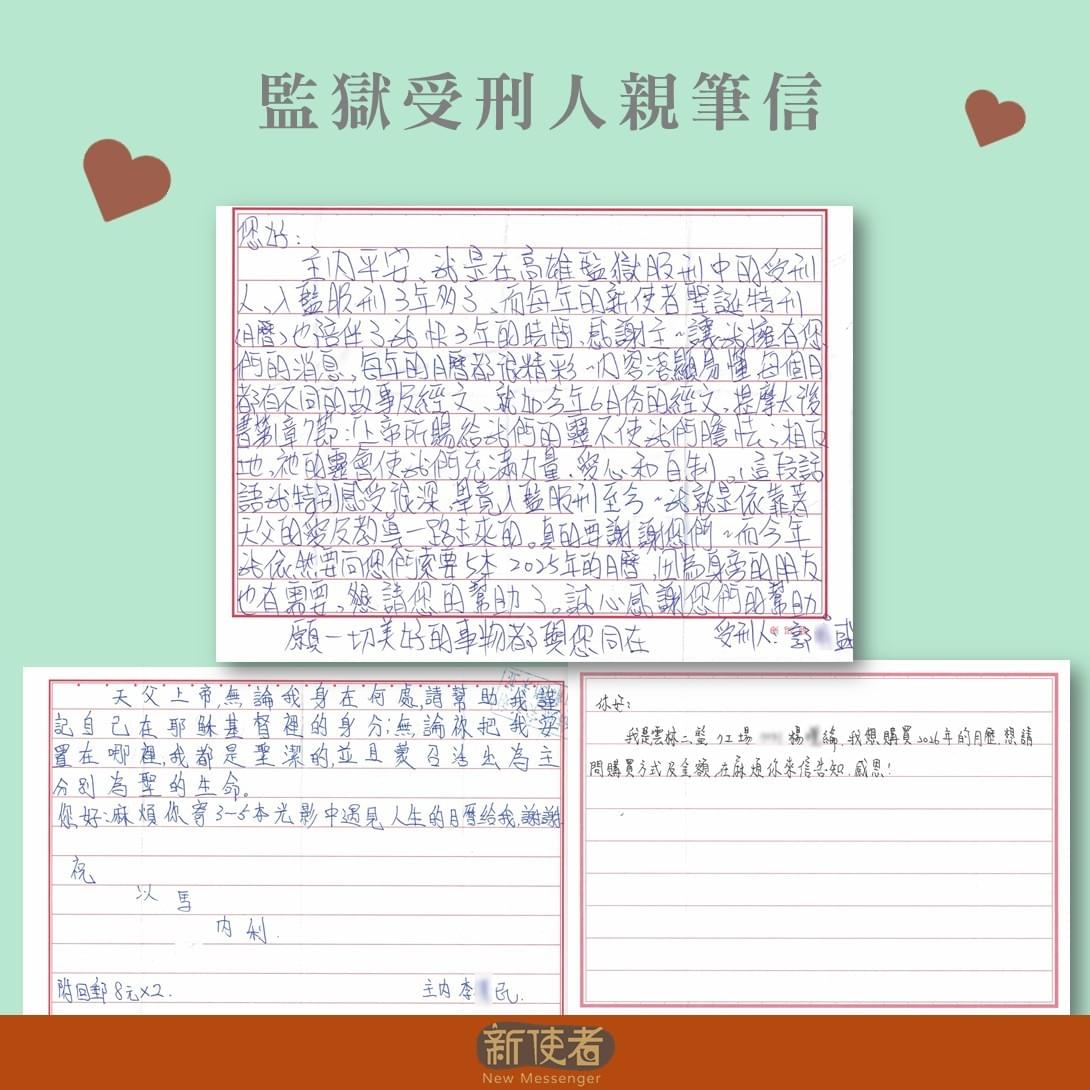 監獄受刑人親筆信
您好：
主內平安、我是在高雄監獄服刑中的受刑
人、入監服刑3年多了、而每年的新使者聖誕特刊
(月曆)也陪伴了我快3年的時間、感謝主~讓我擁有您
們的消息、每年的月曆都很精彩~內容淺顯易懂、每個月
都有不同的故事及經文、就如今年6月份的經文、提摩太後
書第1章7節：上帝所賜給我們的靈不使我們膽怯；相反
地、祂的靈會使我們充滿力量、愛心和自制。這段話
語我特別感受很深、畢竟入監服刑至今~我就是依靠著
天父的愛及教導一路走來的。真的要謝謝您們~而今年
我依然要向您們索要5本 2025年的月曆、因為身旁的朋友
也有需要、懇請您的幫助了。誠心感謝您們的幫助
願一切美好的事物都與您同在 受刑人：郭 盛
天父上帝,無論我身在何處,請幫助我謹
記自己在耶穌基督裡的身分;無論祢把我安
置在哪裡,我都是聖潔的,並且蒙召活出為主
分別為聖的生命。
您好:麻煩你寄3~5本光影中遇見人生的月曆給我,謝謝
祝
以馬
內利.
附回郵8元×2. 主內 李 民.
你好：
我是雲林二監 工場 楊 綸、我想購買2026年的月曆、想請
問購買方式及金額、在麻煩你來信告知、感恩！
新使者
New Messenger